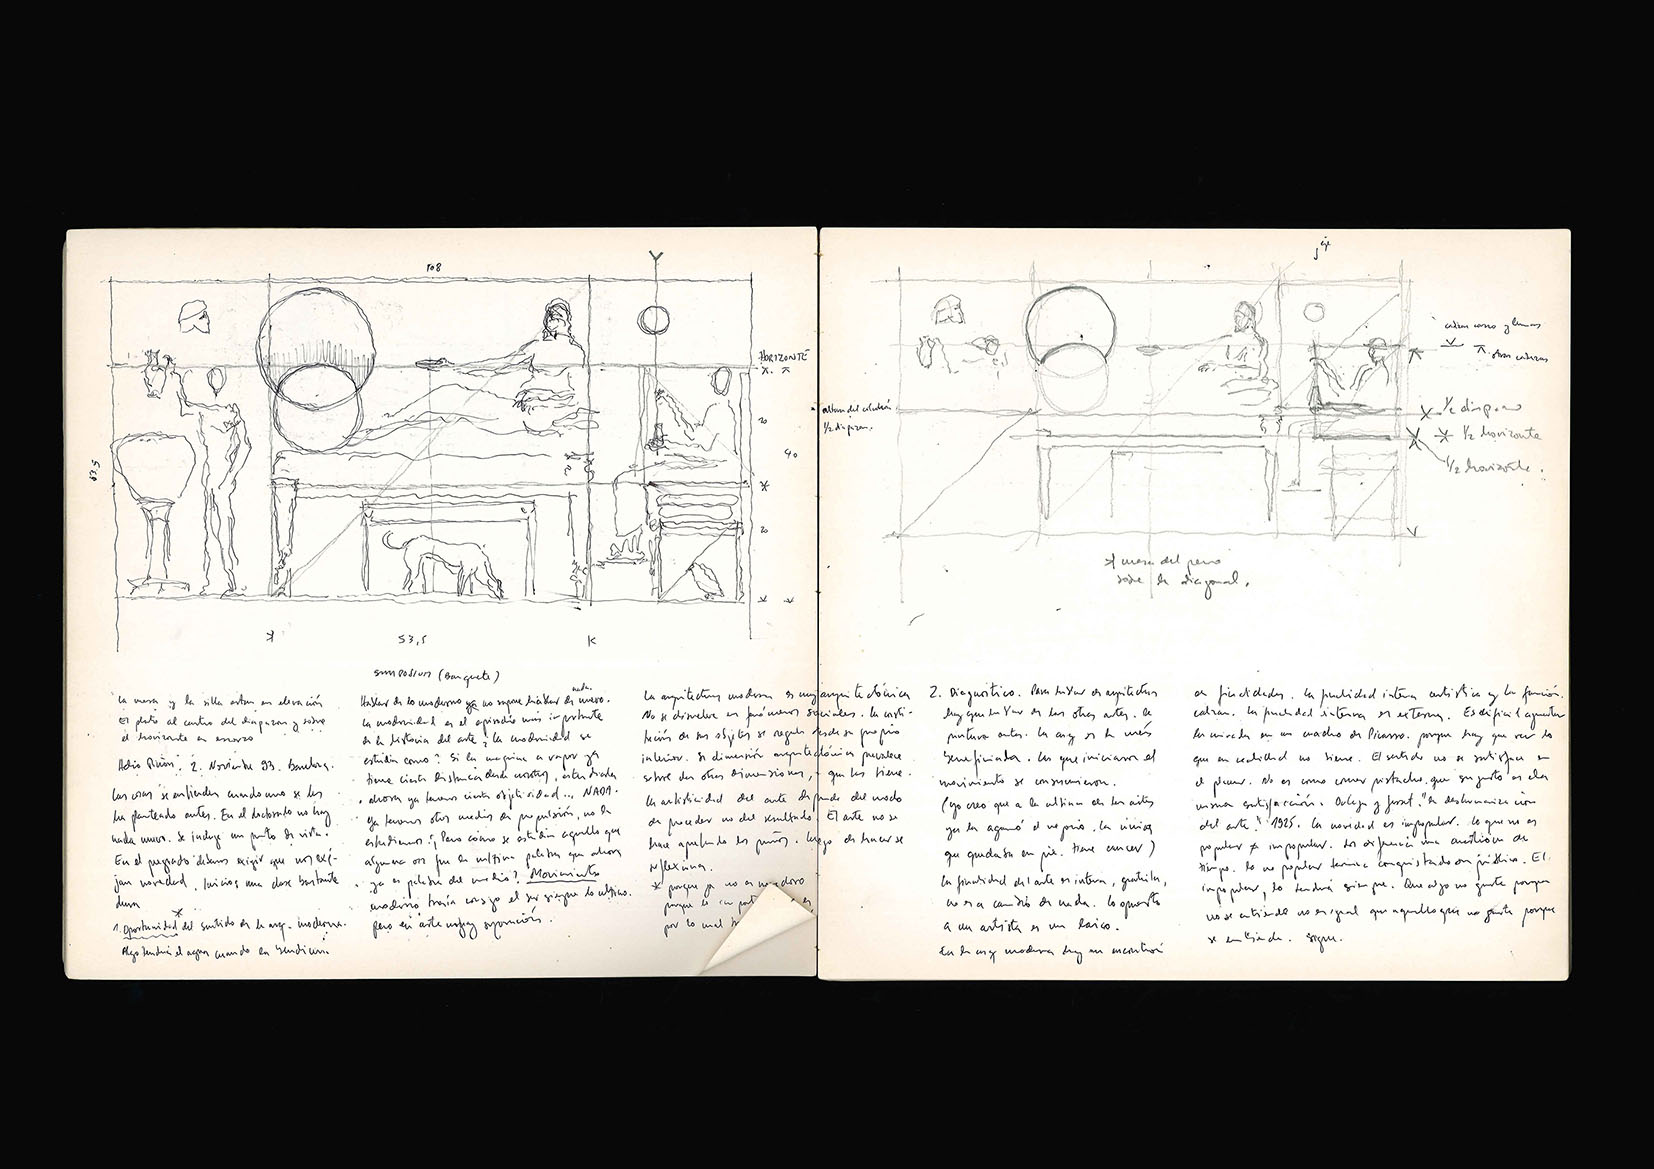 108
HORIZONTE
20
40
20
53,5
53,5
SIMPOSIUM (Banquete)
la mesa y la silla estan en elevación
El plato al centro del diapazon y sobre
el horizonte en escorzo
Helio Piñón. 2. Noviembre 93. Barcelona.
Las cosas se entienden cuando uno se las
ha planteado antes. En el doctorado no hay
nada nuevo. Se incluye un punto de vista.
En el pregrado debemos exigir que nos
novedad. una clase bastante
dura
1. Oportunidad del sentido de la arq. moderna.
Algo tendrá el agua cuando la bendicen.
Hablar de lo moderno ya no supone hablar de nuevo.
nada
la modernidad es el episodio más importante
de la historia del arte ¿la modernidad se
estudia como? Si la maquina a vapor ya
tiene cierta distancia desde nosotros, estudiada
ahora ya tenemos cierta objetividad... NADA.
ya tenemos otros medios de propulsión, no la
estudiamos? ¿Pero cómo se estudia aquello que
alguna vez fue la ultima palabra que ahora
ya es palabra del medio? Movimiento
moderno traía consigo el ser siempre lo ultimo.
pero en arte no hay
La arquitectura moderna es muy arquitectónica
No se disuelve en fenómenos sociales. La
de sus objetos se regula desde su propio
interior. Su dimensión arquitectónica prevalece
sobre las otras dimensiones, que las tiene.
La artisticidad del arte depende del modo
de proceder no del resultado. El arte no se
hace apretando los puños. luego de hacer se
reflexiona.
* porque ya no es
porque es
por lo cual
eje
otras cabezas
altura del
1/2 diapazon.
1/2 diapazon
1/2 horizonte
1/2 horizonte.
* mesa del perro
sobre la diagonal.
2. Diagnóstico. Para hablar de arquitectura
hay que hablar de las otras artes. la
pintura antes. La arq es la más
beneficiada. Los que iniciaron el
movimiento se consumieron.
(yo creo que a la ultima de las artes
ya la agarró el negocio. la única
que quedaba en pie. tiene cancer)
la finalidad del arte es interna, gratuita,
no es a cambio de nada. lo opuesto
a un artista es un laico.
En la arq moderna hay un encontrón
de finalidades. la finalidad interna artistica y la función.
la finalidad interna es externa. Es dificil aguantar
la mirada en un cuadro de Picasso. porque hay que ver lo
que en realidad no tiene. El sentido no se satisface en
el placer. No es como comer pistacho. que su gusto es ella
misma satisfacción. Ortega y Gasset. "La deshumanización
del arte." 1925. la novedad es impopular. lo que no es
popular ≠ impopular. los diferencia una cuestion de
tiempo. lo no popular termina conquistando un público. El
impopular, lo tendrá siempre. Que algo no guste porque
no se entiende no es igual que aquello que no gusta porque
se entiende. sigue.